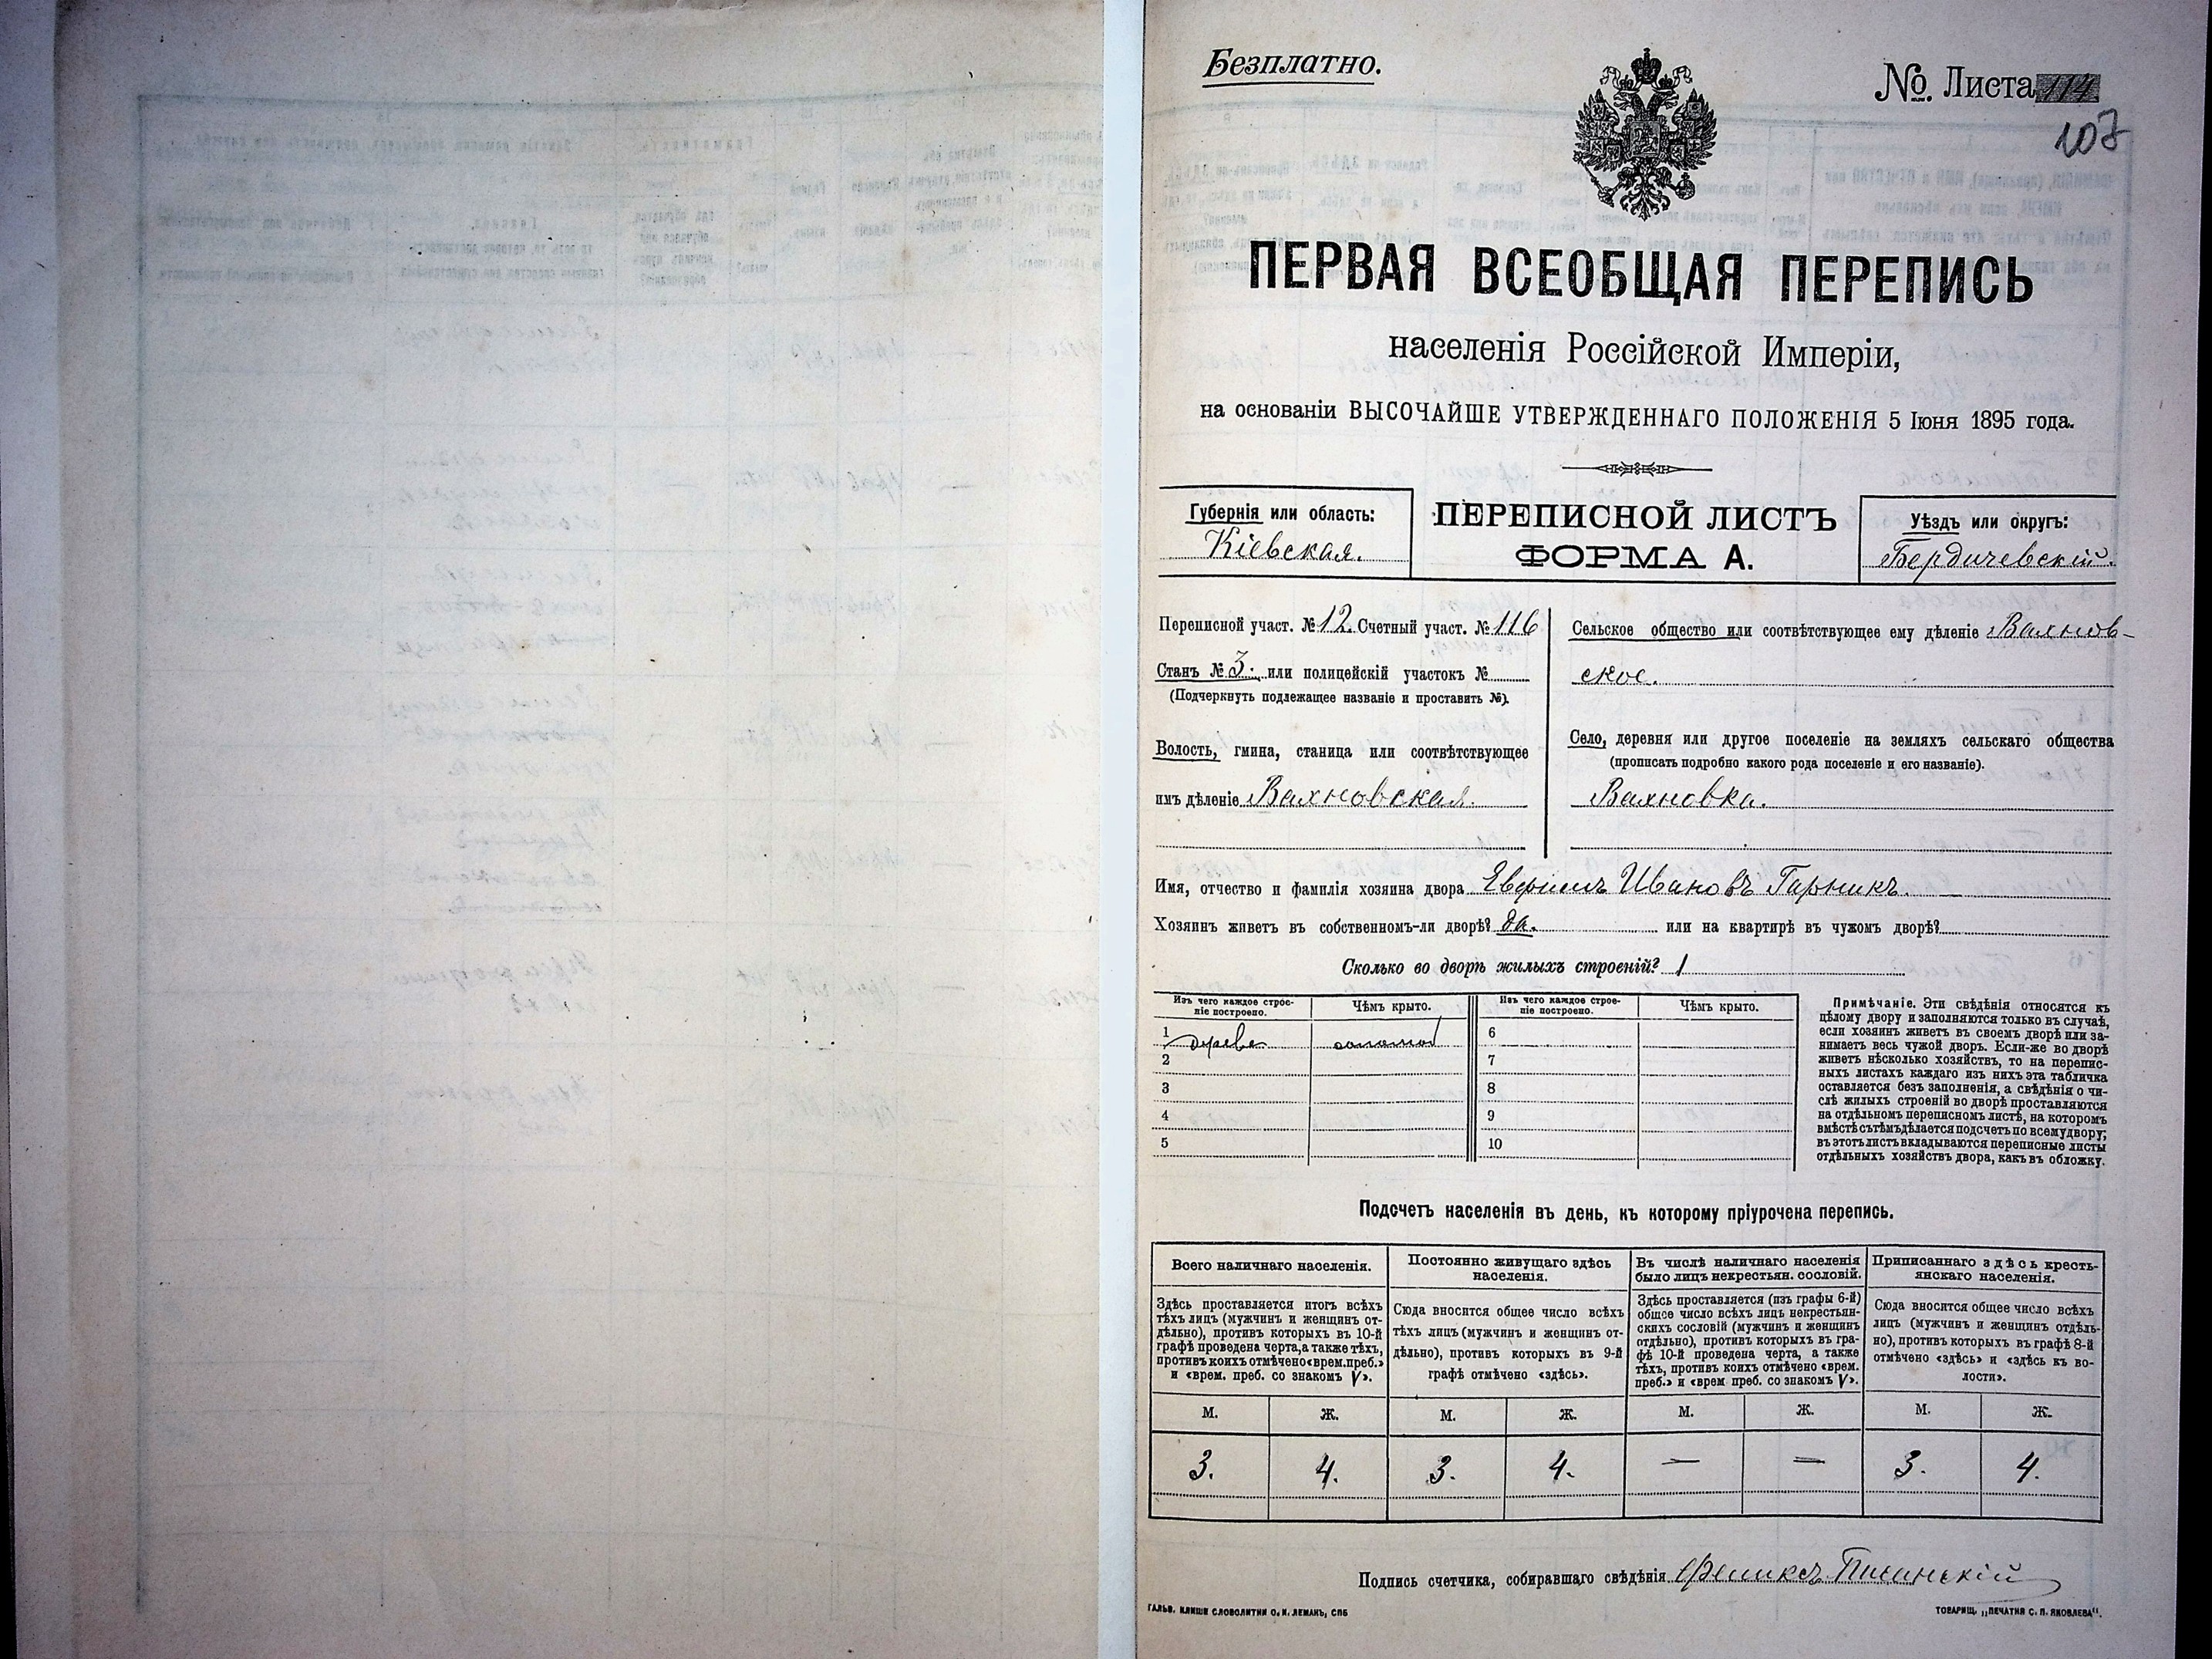 Безплатно.
№ Листа 114
107
ПЕРВАЯ ВСЕОБЩАЯ ПЕРЕПИСЬ
населенія Россійской Имперіи,
на основаніи ВЫСОЧАЙШЕ УТВЕРЖДЕННАГО ПОЛОЖЕНІЯ 5 Іюня 1895 года.
Губернія или область:
Кіевская.
ПЕРЕПИСНОЙ ЛИСТЪ
ФОРМА А.
Уѣздъ или округъ:
Бердичевскій.
Переписной участ. № 12. Счетный участ. № 116
Станъ № 3. или полицейскій участокъ №
(Подчеркнуть подлежащее названіе и проставить №).
Волость, гмина, станица или соотвѣтствующее
имъ дѣленіе Вахновская.
Сельское общество или соотвѣтствующее ему дѣленіе Вахнов-
ское.
Село, деревня или другое поселеніе на земляхъ сельскаго общества
(прописать подробно какого рода поселеніе и его названіе).
Вахновка.
Имя, отчество и фамилія хозяина двора Ивановъ Гарникъ.
Хозяинъ живетъ въ собственномъ-ли дворѣ? да. или на квартирѣ въ чужомъ дворѣ?
Сколько во дворѣ жилыхъ строеній? 1
Изъ чего каждое строе-
ніе построено.
Чѣмъ крыто.
Изъ чего каждое строе-
ніе построено.
Чѣмъ крыто.
1 дерева соломой
2
3
4
5
6
7
8
9
10
Примѣчаніе. Эти свѣдѣнія относятся къ
цѣлому двору и заполняются только въ случаѣ,
если хозяинъ живетъ въ своемъ дворѣ или за-
нимаетъ весь чужой дворъ. Если-же во дворѣ
живетъ нѣсколько хозяйствъ, то на перепис-
ныхъ листахъ каждаго изъ нихъ эта табличка
оставляется безъ заполненія, а свѣдѣнія о чи-
слѣ жилыхъ строеній во дворѣ проставляются
на отдѣльномъ переписномъ листѣ, на которомъ
вмѣстѣ съ тѣмъ дѣлается подсчетъ по всему двору;
въ этотъ листъ вкладываются переписные листы
отдѣльныхъ хозяйствъ двора, какъ въ обложку.
Подсчетъ населенія въ день, къ которому пріурочена перепись.
Всего наличнаго населенія.
Здѣсь проставляется итогъ всѣхъ
тѣхъ лицъ (мужчинъ и женщинъ от-
дѣльно), противъ которыхъ въ 10-й
графѣ проведена черта, а также тѣхъ,
противъ коихъ отмѣчено «врем. преб.»
и «врем. преб. со знакомъ V».
Постоянно живущаго здѣсь
населенія.
Сюда вносится общее число всѣхъ
тѣхъ лицъ (мужчинъ и женщинъ от-
дѣльно), противъ которыхъ въ 9-й
графѣ отмѣчено «здѣсь».
Въ числѣ наличнаго населенія
было лицъ некрестьян. сословій.
Здѣсь проставляется (изъ графы 6-й)
общее число всѣхъ лицъ некрестьян-
скихъ сословій (мужчинъ и женщинъ
отдѣльно), противъ которыхъ въ гра-
фѣ 10-й проведена черта, а также
тѣхъ, противъ коихъ отмѣчено «врем.
преб.» и «врем преб. со знакомъ V».
Приписаннаго здѣсь кресть-
янскаго населенія.
Сюда вносится общее число всѣхъ
лицъ (мужчинъ и женщинъ отдѣль-
но), противъ которыхъ въ графѣ 8-й
отмѣчено «здѣсь» и «здѣсь къ во-
лости».
М. Ж. М. Ж. М. Ж. М. Ж.
3. 4. 3. 4. — — 3. 4.
Подпись счетчика, собиравшаго свѣдѣнія Феликсъ
ГАЛЬВ. КЛИШЕ СЛОВОЛИТНИ О. И. ЛЕМАНЪ, СПБ
ТОВАРИЩ. „ПЕЧАТНЯ С. П. ЯКОВЛЕВА“.